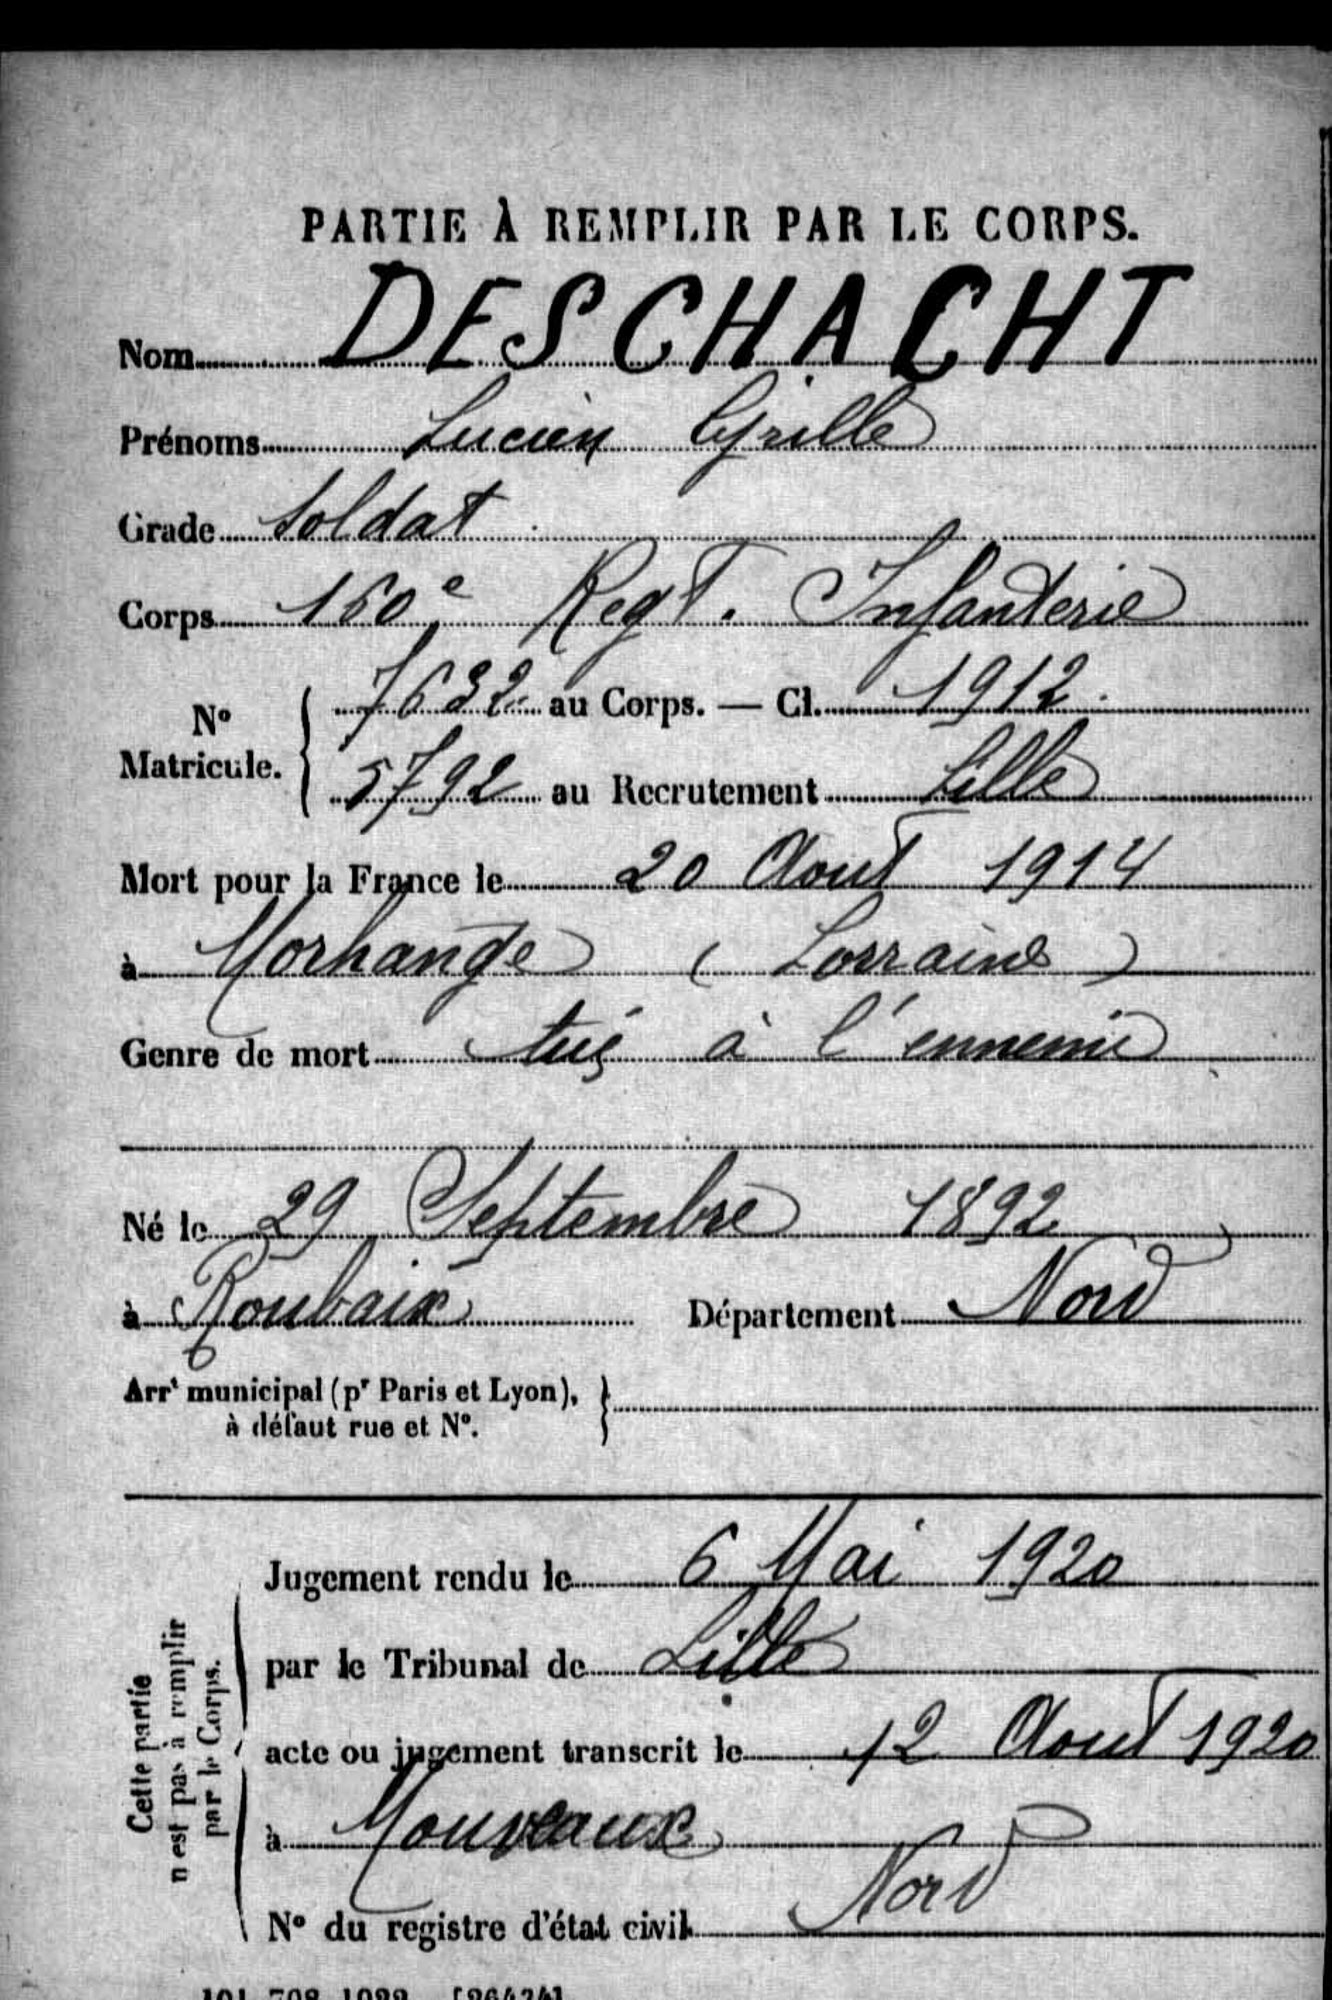 PARTIE À REMPLIR PAR LE CORPS.
Nom DESCHACHT
Prénoms Lucien Cyrille
Grade Soldat
Corps 160e Regt. Infanterie
No Matricule. { 7632 au Corps. — Cl. 1912.
5792 au Recrutement Lille
Mort pour la France le 20 Aout 1914
à Morhange ( Lorraine )
Genre de mort tué à l'ennemi
Né le 29 Septembre 1892
à Roubaix Département Nord
Arrt municipal (pr Paris et Lyon), }
à défaut rue et No.
Cette partie
n'est pas à remplir
par le Corps.
Jugement rendu le 6 Mai 1920
par le Tribunal de Lille
acte ou jugement transcrit le 12 Aout 1920
à Mouvaux
Nord
No du registre d'état civil
101-708-1922. [26434]